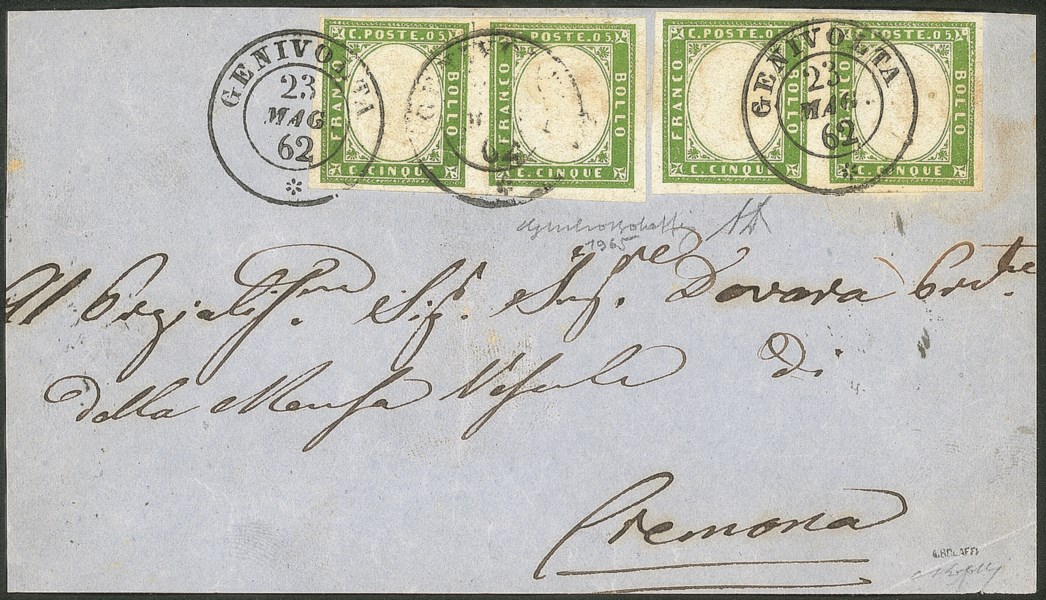 C. POSTE. 05. C. POSTE. 05. C. POSTE. 05. C. POSTE. 05.
FRANCO BOLLO FRANCO BOLLO FRANCO BOLLO BOLLO
C. CINQUE C. CINQUE C. CINQUE C. CINQUE
GENIVOLTA
23
MAG
62
GENIVOLTA
23
MAG
62
1965
Al Pregiatiss.mo Sig.r Ing.re Dovara
della Mensa Vescovile di
Cremona
G.BOLAFFI